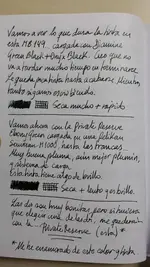 Vamos a ver lo que dura la tinta en
esta MB149, cargada con Diamine
Green Black + Onyx Black. Creo que no
va a tardar mucho tiempo en
Le queda poquito hasta acabarse. Mientras
tanto sigamos escribiendo.
Seca mucho + rápido
Vamos ahora con la Private Reserve
Ebony Green cargada en una Pelikan
Souverän M1000, hasta las trancas.
Muy buena pluma, aun mejor plumín,
y sistema de carga.
Esta tinta tiene algo de brillo.
Seca + lento y es brillo.
Las dos son muy bonitas pero si tuviera
que elegir una, de lejos, me quedaría
con la Private Reserve (ésta)*
* Me he enamorado de este color y tinta